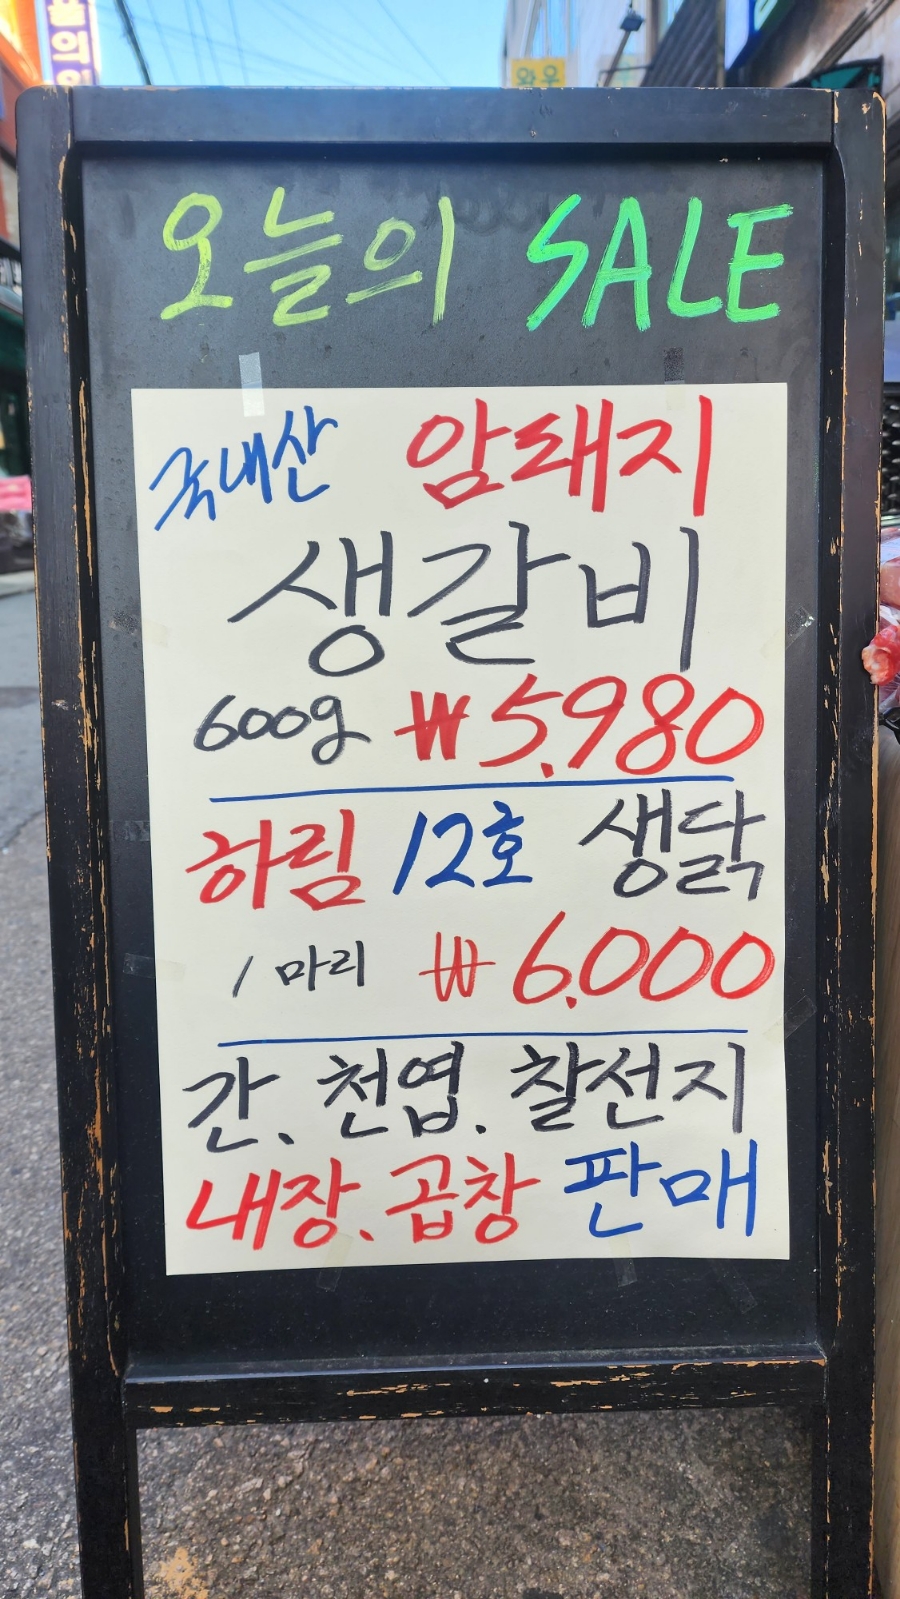 오늘의 SALE
국내산 암돼지
생갈비
600g ₩5,980
하림 12호 생닭
1 마리 ₩6,000
간. 천엽. 찰선지
내장. 곱창 판매